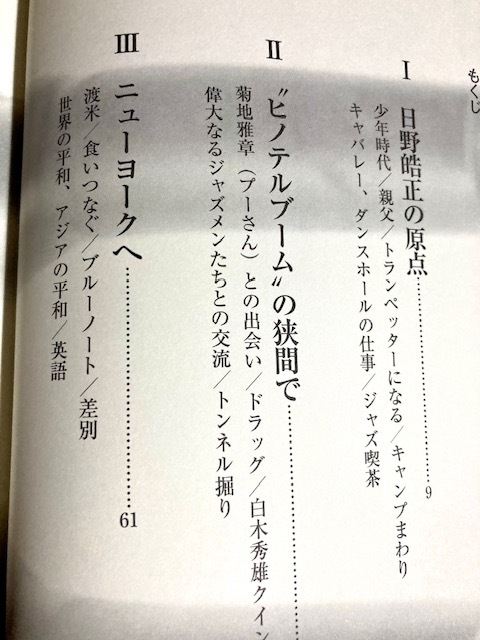 もくじ
I 日野皓正の原点……………………9
少年時代／親父／トランペッターになる／キャンプまわり
キャバレー、ダンスホールの仕事／ジャズ喫茶
II “ヒノテルブーム”の狭間で……………………
菊地雅章（プーさん）との出会い／ドラッグ／白木秀雄クイン
偉大なるジャズメンたちとの交流／トンネル掘り
III ニューヨークへ……………………61
渡米／食いつなぐ／ブルーノート／差別
世界の平和、アジアの平和／英語